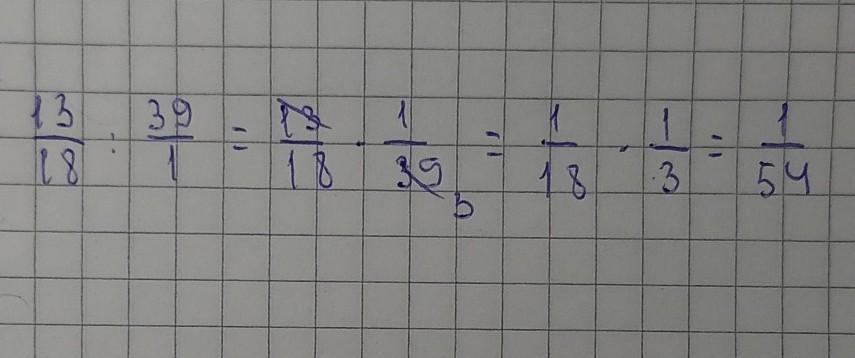 13/18 : 39/1 = 13/18 · 1/39 3 = 1/18 · 1/3 = 1/54